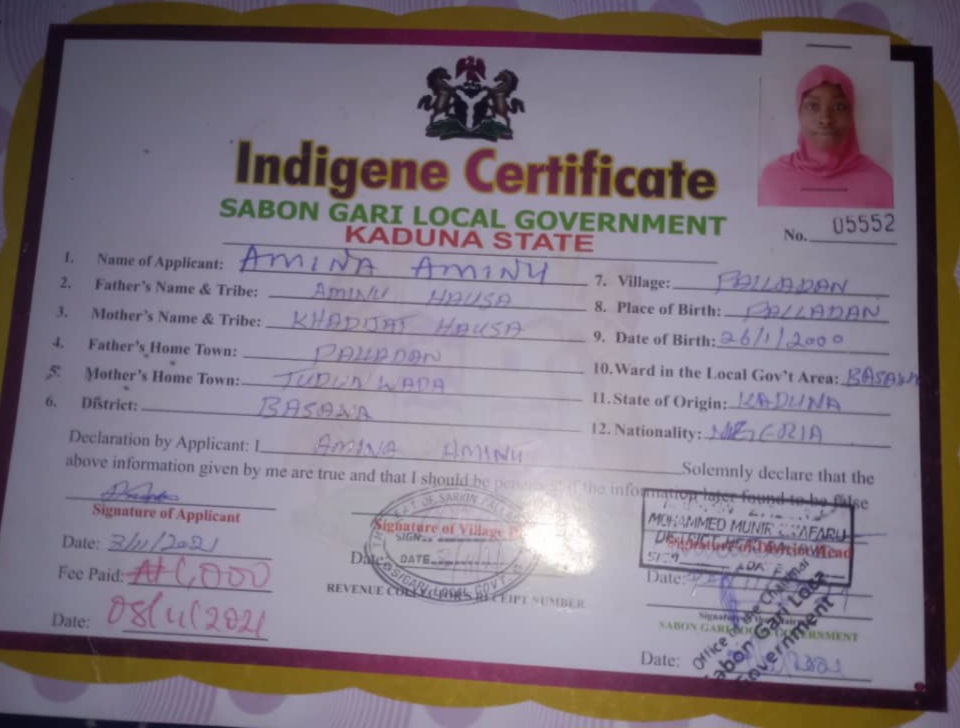 Indigene Certificate
SABON GARI LOCAL GOVERNMENT
KADUNA STATE
No. 05552
1. Name of Applicant: AMINA AMINU
2. Father's Name & Tribe: AMINU HAUSA
3. Mother's Name & Tribe: KHADIJAT HAUSA
4. Father's Home Town: PALLADAN
5. Mother's Home Town: TUDUN WADA
6. District: BASAWA
7. Village: PALLADAN
8. Place of Birth: PALLADAN
9. Date of Birth: 26/1/2000
10. Ward in the Local Gov't Area: BASAWA
11. State of Origin: KADUNA
12. Nationality: NIGERIA
Declaration by Applicant: I AMINA AMINU Solemnly declare that the
above information given by me are true and that I should be if the information later found to be false
Signature of Applicant
Date: 3/11/2021
Fee Paid: ₦1,000
Date: 08/11/2021
Signature of Village
SIGN
DATE
Date:
SIGARI LOCAL GOVT
REVENUE COLLECTOR'S RECEIPT NUMBER
MOHAMMED MUNIR
Signature of District Head
Date:
SABON GARI LOCAL GOVERNMENT
Office of the Chairman
Sabon Gari Local
Government
Date: 2021